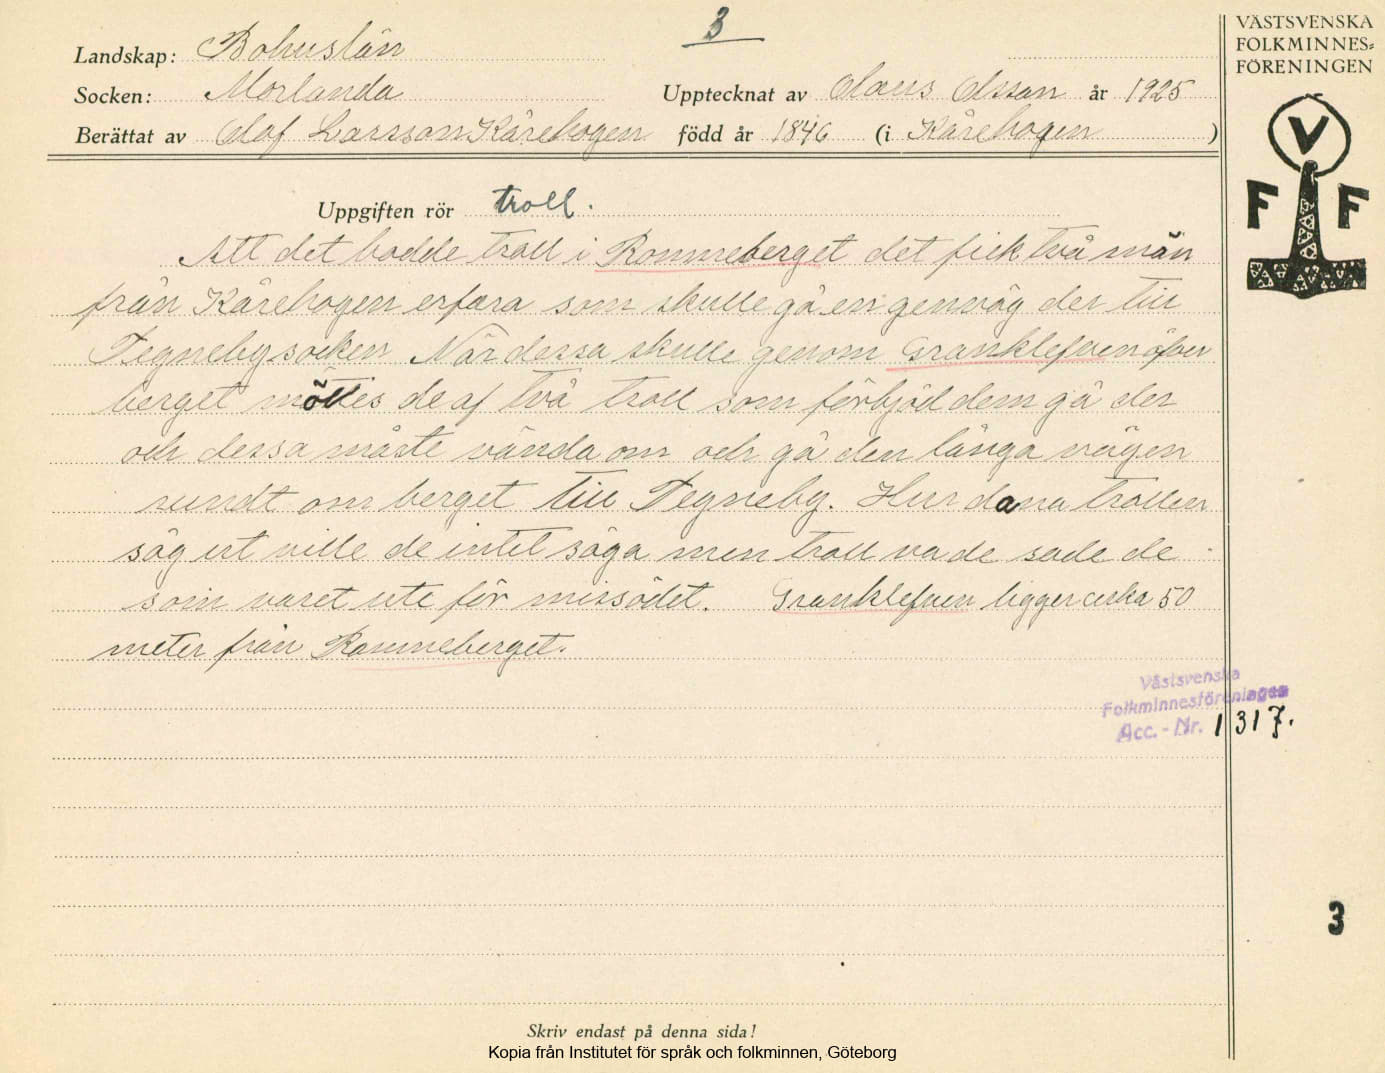 3
Landskap: Bohuslän
Socken: Morlanda
Upptecknat av Claus Olsson år 1925
Berättat av Olof Larsson Kårehogen född år 1846 (i Kårehogen )
VÄSTSVENSKA
FOLKMINNES=
FÖRENINGEN
V
F F
Uppgiften rör troll.
Att det bodde troll i Ronneberget det fick två män
från Kårehogen erfara som skulle gå en genväg der till
Tegneby socken När dessa skulle genom Granklefven öfver
berget möttes de af två troll som förbjöd dem gå der
och dessa måste vända om och gå den långa vägen
rundt om berget till Tegneby. Hurdana trollen
såg ut ville de intet säga men troll va de sade de
som varet ute för missödet. Granklefven ligger cirka 50
meter från Ronneberget.
Västsvenska
Folkminnesföreningen
Acc.-Nr. 1317.
3
Skriv endast på denna sida!
Kopia från Institutet för språk och folkminnen, Göteborg